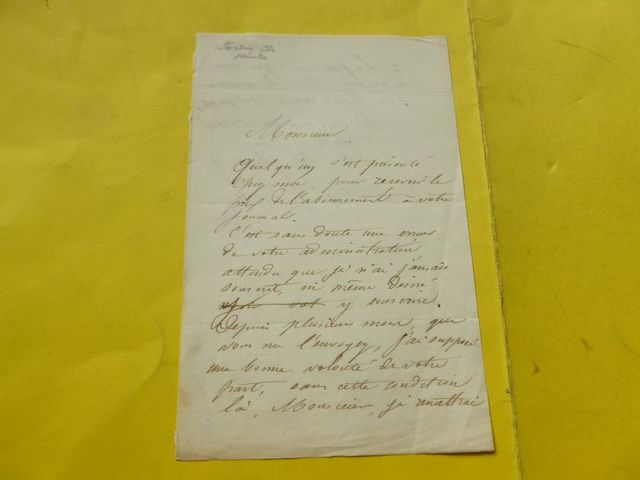 Monsieur
Quelqu'un s'est présenté
chez moi pour recevoir le
prix de l'abonnement à votre
journal.
C'est sans doute une erreur
de votre administration
attendu que je n'ai jamais
souscrit, ni même désiré
y souscrire.
Depuis plusieurs mois que
vous me l'envoyez, j'ai supposé
une bonne volonté de votre
part, sans cette condition
là, Monsieur, je